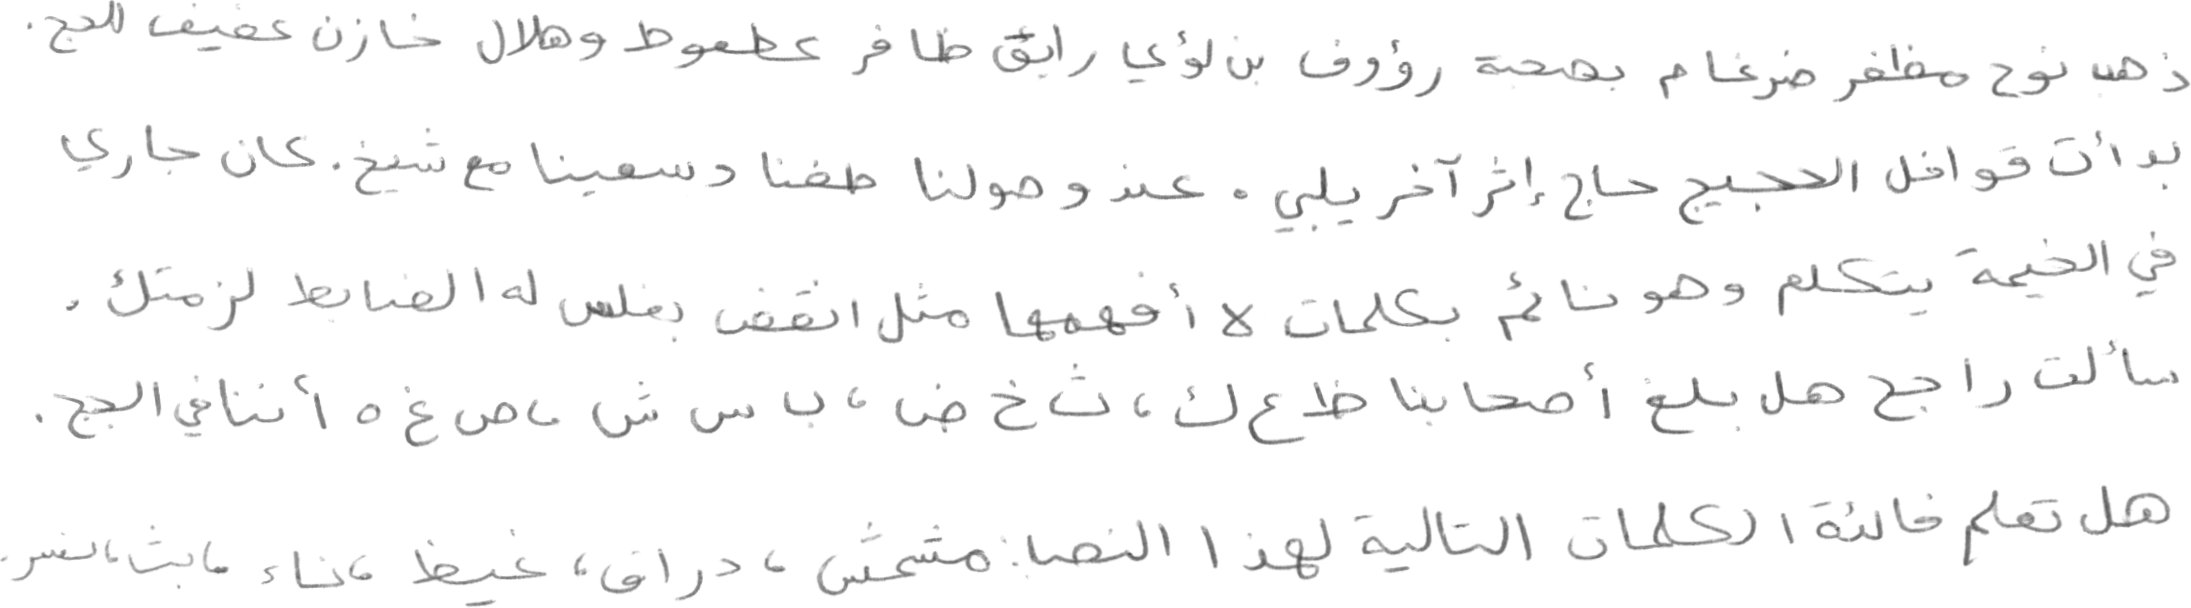 ذهب نوح مظفر ضرغام بصحبة رؤوف بن لؤي رابق ظافر عطعوط وهلال خازن عفيف للحج.
بدأت قوافل الحجيج حاج إثر آخر يلبي. عند وصولنا طفنا وسعينا مع شيخ. كان جاري
في الخيمة يتكلم وهو نائم بكلمات لا أفهمها مثل انقض بغلس له الضابط لزمتك.
سألت راجح هل بلغ أصحابنا ظ ع ك، ث خ ض، ب س ش، ص غ ه أننا في الحج.
هل تعلم فائدة الكلمات التالية لهذا النص: مشمش، دراق، غيظ، ناء، بث،